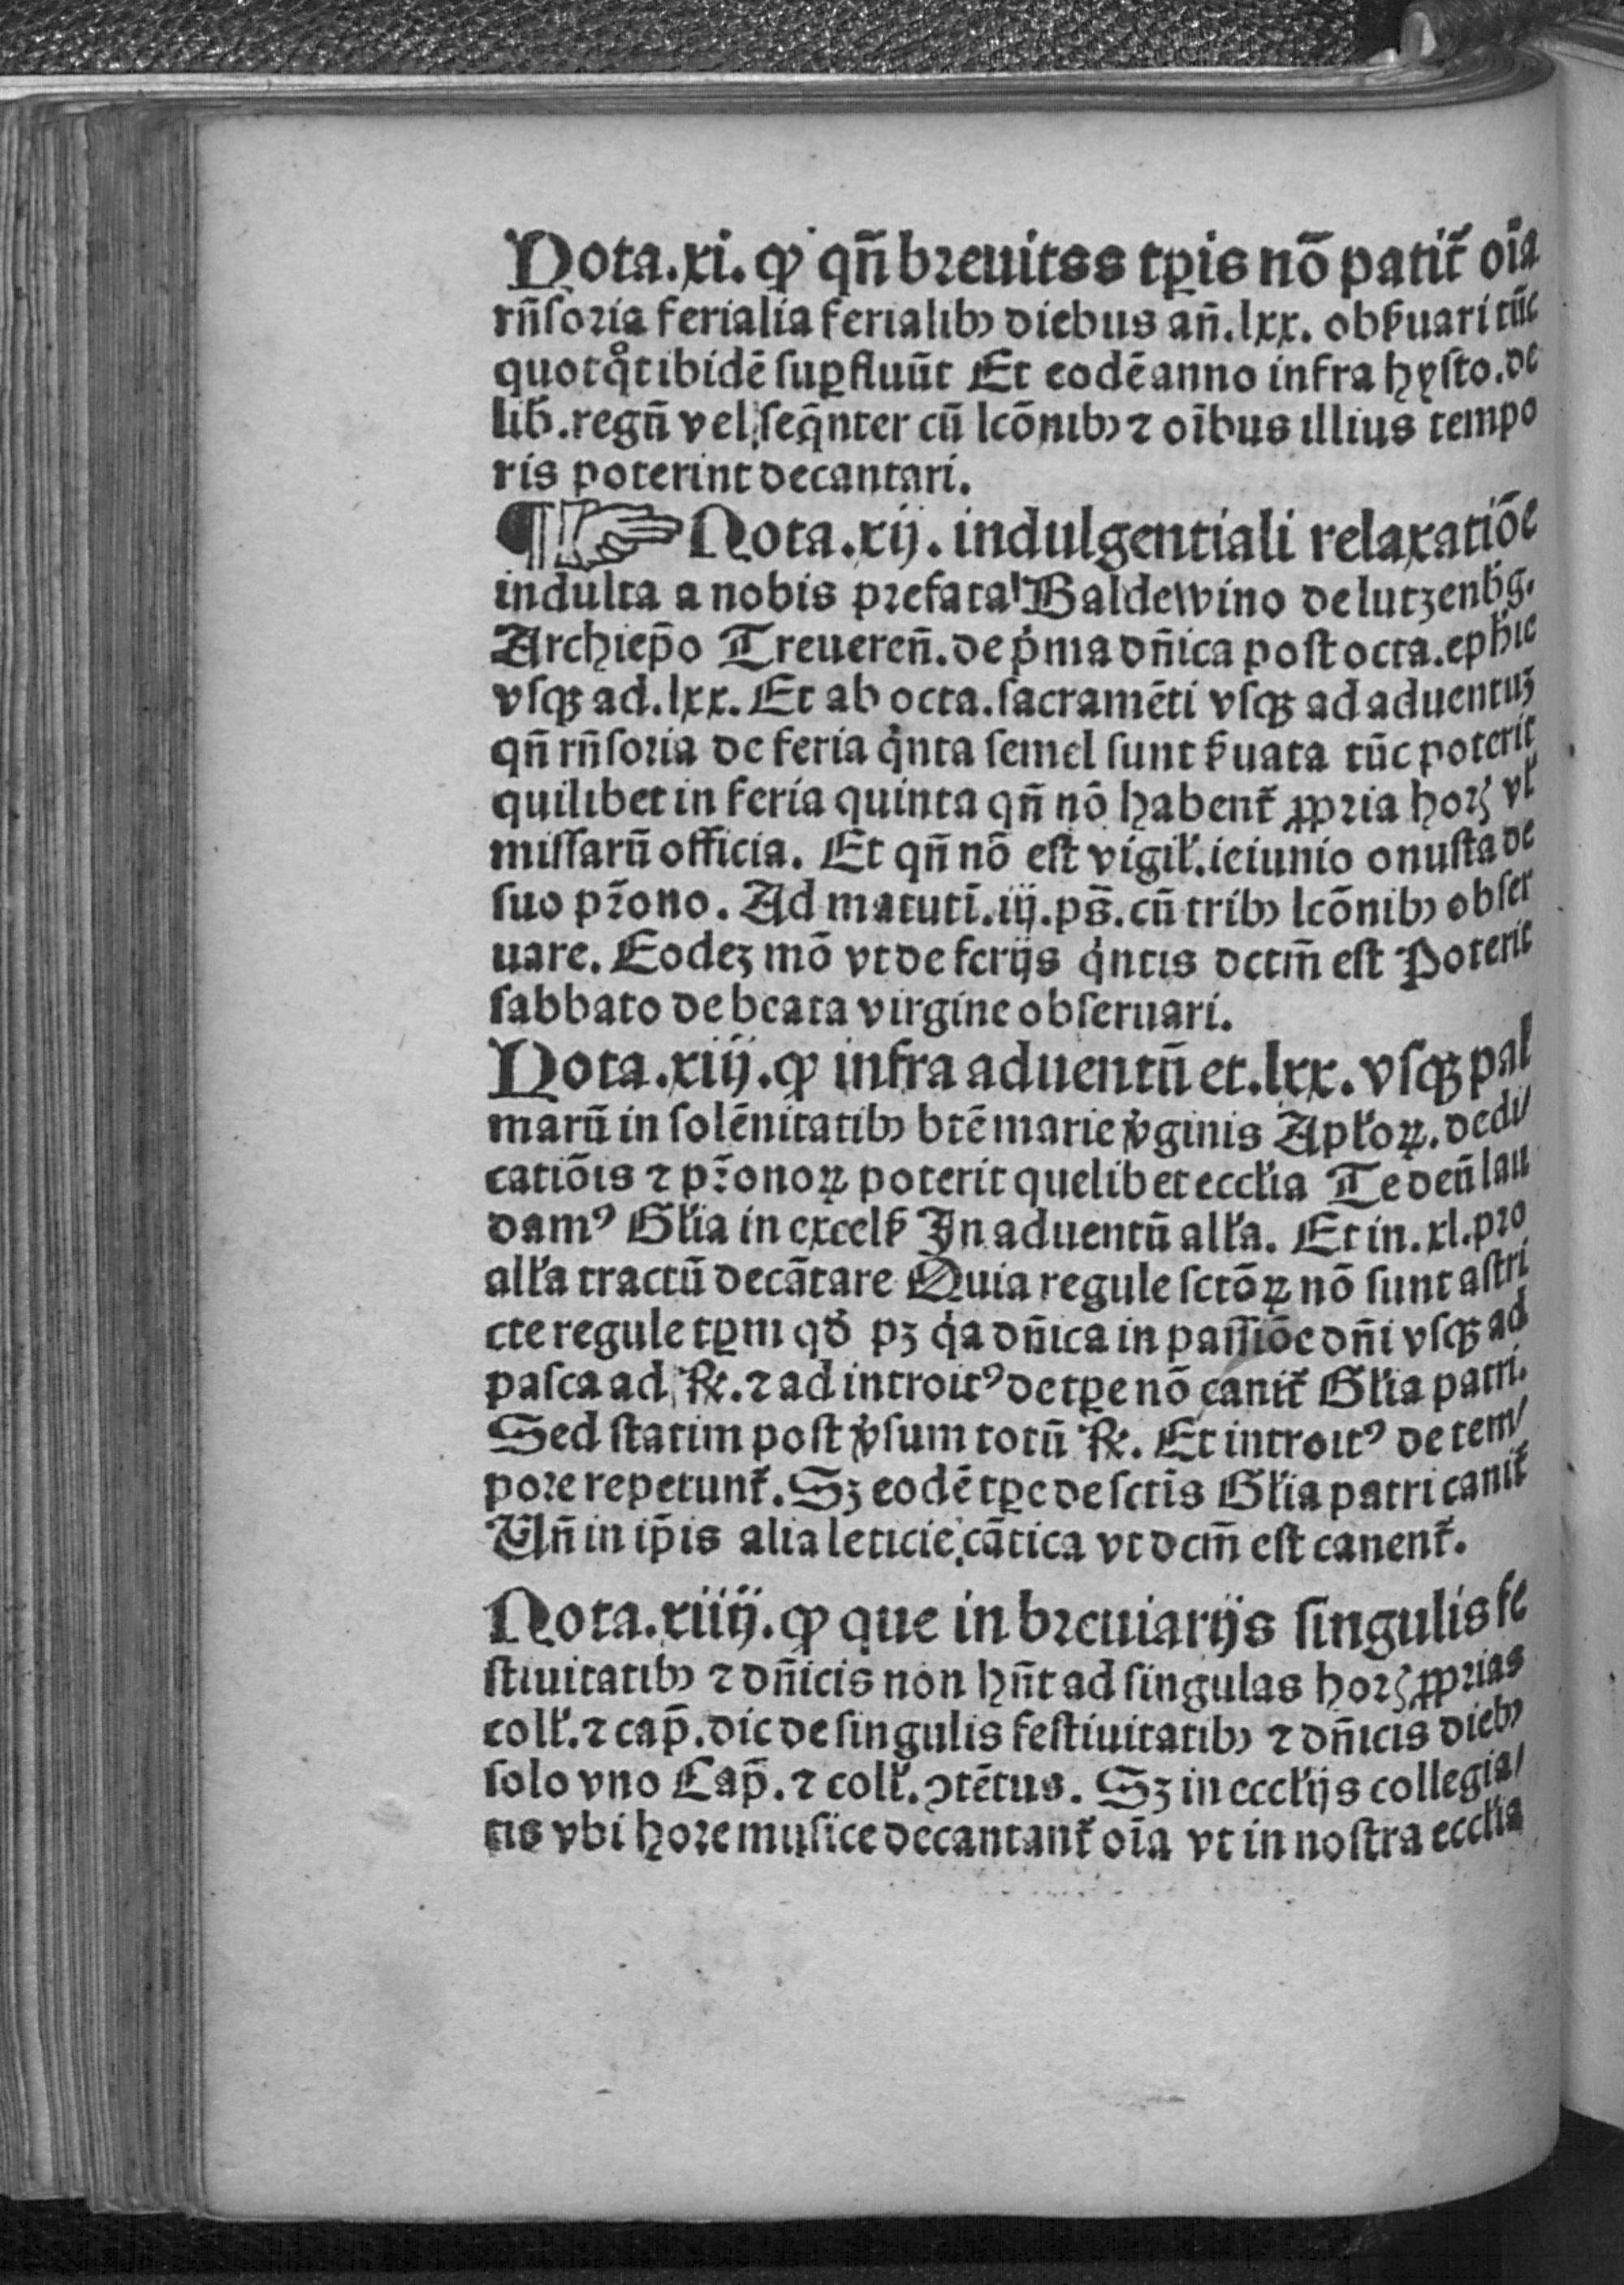 Nota.xi.ꝙ qñ breuitss tp̲is nō patit᷑ oīa
rñſoria ferialia ferialibꝫ diebus añ.lxx. obẜuari tūc
quotqͦt ibidē ſup̲fluūt Et eodē anno infra hyſto.de
lib̄.regū vel ſeq̄nter cū lcōnibꝫ ⁊ oībus illius tempo
ris poterint decantari.
¶☞ Nota.xij. indulgentiali relaxatiōe
indulta a nobis prefata Baldewino de lutzenb᷑g.
Archiep̄o Treuereñ.de p̍ma dñica poſt octa.eph̄ie
vſqꝫ ad.lxx. Et ab octa.ſacramēti vſqꝫ ad aduentuꝫ
qñ rñſoria de feria q̍nta ſemel ſunt ẜuata tūc poterit
quilibet in feria quinta qñ nō habent᷑ ꝓpria horꝭ vł
miſſarū officia. Et qñ nō eſt vigił.ieiunio onuſta de
ſuo pr̄ono. Ad matuti̅.iij.ps̄.cū tribꝫ lcōnibꝫ obſer
uare. Eodeꝫ mō vt de ferijs q̍ntis dctm̄ eſt Poterit
ſabbato de beata virgine obſeruari.
Nota.xiij.ꝙ infra aduentū et.lxx. vſqꝫ pal
marū in ſolēnitatibꝫ btē marie v̍ginis Apłoꝝ. dedi/
catiōis ⁊ pr̄onoꝝ poterit quelibet eccłia Te deū lau
damꝰ Głia in excelẜ In aduentū ałła. Et in.xl.pro
ałła tractū decātare Quia regule sctōꝝ nō ſunt aſtri
cte regule tp̲m qd̄ pꝫ q̍a dñica in paſſiōe dñi vſqꝫ ad
paſca ad ℞. ⁊ ad introitꝰ de tp̲e nō canit᷑ Głia patri.
Sed ſtatim poſt v̍ſum totū ℞. Et introitꝰ de tem/
pore repetunt᷑. Sꝫ eodē tp̲e de ſctis̄ Głia patri canit᷑
Uñ in ip̄is alia leticie cātica vt dcm̄ eſt canent᷑.
Nota.xiiij.ꝙ que in breuiarijs ſingulis fe
ſtiuitatibꝫ ⁊ dñicis non hñt ad ſingulas horꝭ ꝓprias
colł. ⁊ cap̄. dic de ſingulis feſtiuitatibꝫ ⁊ dñicis diebꝫ
ſolo vno Cap̄. ⁊ colł. ꝯtētus. Sꝫ in eccłijs collegia/
tis vbi hore muſice decantant᷑ oīa vt in noſtra eccłia